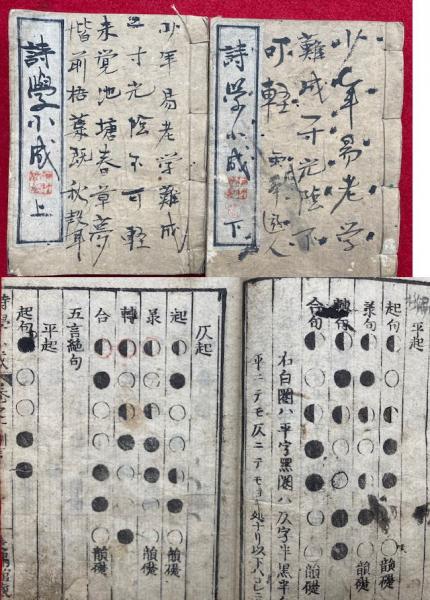 少年易老学
難成一寸光陰不
可軽
詩學小成 下
少年易老学難成
一寸光陰不可軽
未覚池塘春草夢
偕前梧葉既秋聲
詩學小成 上
平起
起句 韻礎
承句 韻礎
轉句
合句 韻礎
右白圏ハ平字黒圏ハ仄字半黒半
平ニテモ仄ニテモヨキ処ナリ以下
仄起
起 韻礎
承 韻礎
轉
合 韻礎
五言絶句
平起
起句